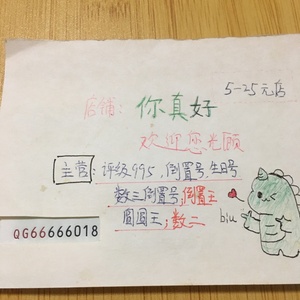 5-25元店
店铺: 你真好
欢迎您光顾
主营: 评级995, 倒置号, 生日号
数三倒置号, 倒置王
圆圆王, 数二
QG66666018
biu